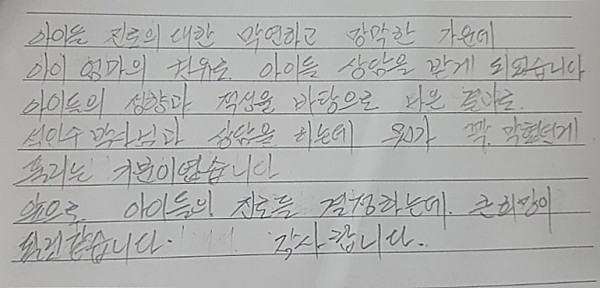 아이들 진로의 대한 막연하고 강막한 가운데
아이 엄마의 권유로 아이들 상담을 받게 되었습니다
아이들의 성향과 적성을 바탕으로 나온 결과로
석인수 박사님과 상담을 하는데 뭔가 꽉 막혔던게
풀리는 기분이였습니다
앞으로 아이들의 진로를 결정하는데 큰 희망이
될것 같습니다. 감사합니다.